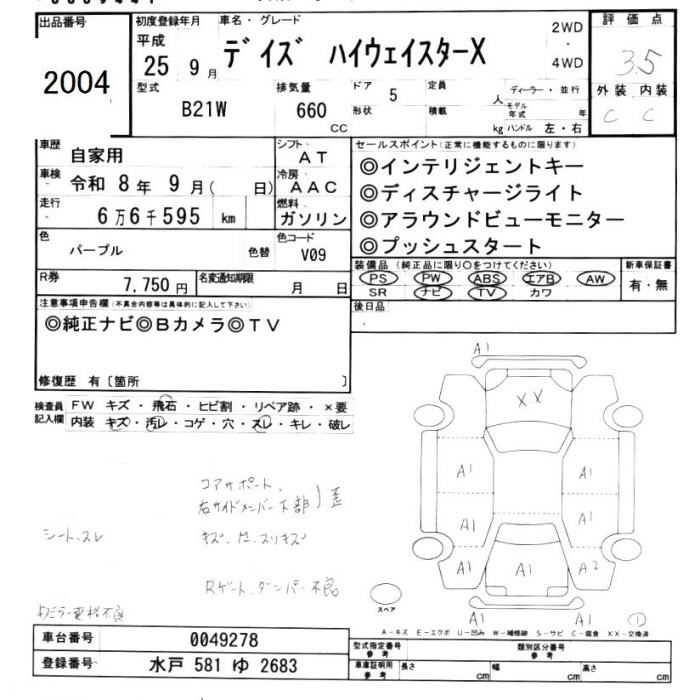 出品番号
2004
初度登録年月
平成
25 9月
車名・グレード
デイズ ハイウェイスターX
2WD
・
4WD
評価点
3.5
外装 内装
C C
型式
B21W
排気量
660
CC
ドア 5
形状
定員
人
積載
kg
ディーラー・並行
モデル年式 年
ハンドル 左・右
車歴 自家用
シフト AT
車検 令和 8年 9月( 日)
冷房 AAC
走行 6万6千595 km
燃料 ガソリン
色 パープル 色替
色コード V09
R券 7,750円
名変通知期限 月 日
セールスポイント(正常に機能するものに限ります)
◎インテリジェントキー
◎ディスチャージライト
◎アラウンドビューモニター
◎プッシュスタート
装備品(純正品に限り○をつけてください)
PS PW ABS エアB AW
SR ナビ TV カワ
新車保証書
有・無
後日品
注意事項申告欄(不具合内容等は具体的に記入して下さい)
◎純正ナビ◎Bカメラ◎TV
修復歴 有〔箇所 〕
検査員記入欄
FW キズ・飛石・ヒビ割・リペア跡・×要
内装 キズ・汚レ・コゲ・穴・スレ・キレ・破レ
コアサポート、
右サイドメンバー下部)歪
シート、スレ
キズ、凹、スリキズ
Rゲート、ダンパー不良
ミラー電格不良
A1
XX
A1 A1
A1 A1
A1 A1 A2
A1
①
スペア
A-キズ E-エクボ U-凹み W-補修跡 S-サビ C-腐食 XX-交換済
車台番号 0049278
登録番号 水戸 581 ゆ 2683
型式指定番号 参考
類別区分番号 参考
車庫証明用 参考
長さ cm 幅 cm 高さ cm